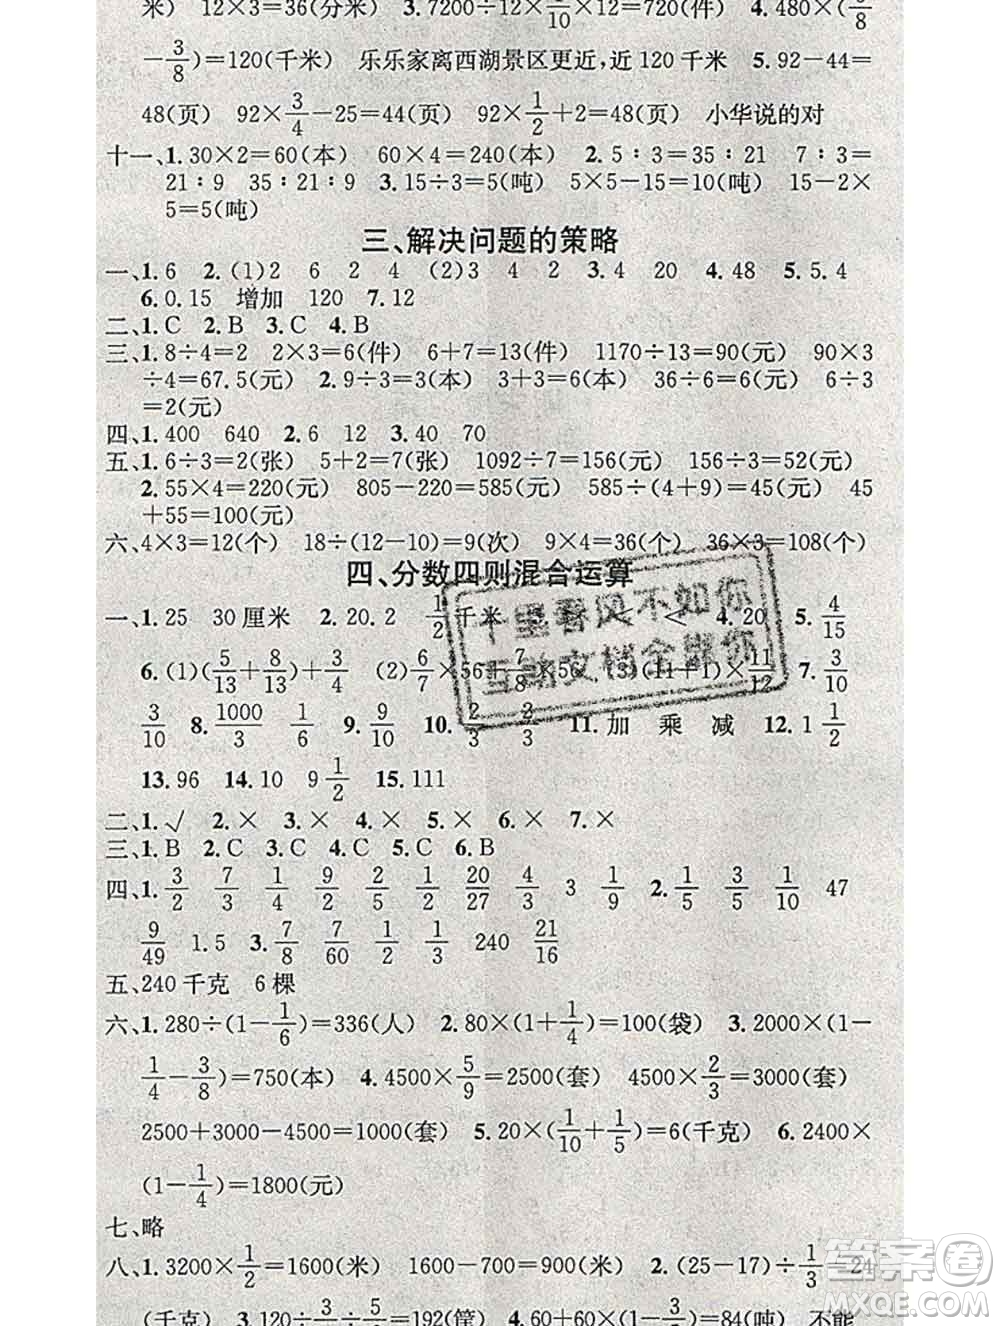 米) 12×3=36(分米) 3.7200÷12×3/10×12=720(件) 4.480×(5/8
-3/8)=120(千米) 乐乐家离西湖景区更近,近120千米 5.92-44=
48(页) 92×3/4-25=44(页) 92×1/2+2=48(页) 小华说的对
十一、1.30×2=60(本) 60×4=240(本) 2.5∶3=35∶21 7∶3=
21∶9 35∶21∶9 3.15÷3=5(吨) 5×5-15=10(吨) 15-2×
5=5(吨)
三、解决问题的策略
一、1.6 2.(1)2 6 2 4 (2)3 4 2 3.4 20 4.48 5.5.4
6.0.15 增加 120 7.12
二、1.C 2.B 3.C 4.B
三、1.8÷4=2 2×3=6(件) 6+7=13(件) 1170÷13=90(元) 90×3
÷4=67.5(元) 2.9÷3=3(本) 3+3=6(本) 36÷6=6(元) 6÷3
=2(元)
四、1.400 640 2.6 12 3.40 70
五、1.6÷3=2(张) 5+2=7(张) 1092÷7=156(元) 156÷3=52(元)
2.55×4=220(元) 805-220=585(元) 585÷(4+9)=45(元) 45
+55=100(元)
六、4×3=12(个) 18÷(12-10)=9(次) 9×4=36(个) 36×3=108(个)
四、分数四则混合运算
一、1.25 30厘米 2.20.2 1/2千米 < 4.20 5.4/15
6.(1)(5/13+8/13)+3/4 (2)6/7×56+7/8×56 (3)(11+1)×11/12 7.3/10
3/10 8.1000/3 1/6 9.9/10 10.2/3 2/3 11.加 乘 减 12.1 1/2
13.96 14.10 9 1/2 15.111
二、1.√ 2.× 3.× 4.× 5.× 6.× 7.×
三、1.B 2.C 3.C 4.C 5.C 6.B
四、1.3/2 7/3 1/4 9/2 1/2 20/27 4/3 3 1/9 2.1/5 3/5 1/10 47
9/49 1.5 3.7/8 7/60 1/2 1/3 240 21/16
五、240千克 6棵
六、1.280÷(1-1/6)=336(人) 2.80×(1+1/4)=100(袋) 3.2000×(1-
1/4-3/8)=750(本) 4.4500×5/9=2500(套) 4500×2/3=3000(套)
2500+3000-4500=1000(套) 5.20×(1/10+1/5)=6(千克) 6.2400×
(1-1/4)=1800(元)
七、略
八、1.3200×1/2=1600(米) 1600-700=900(米) 2.(25-17)÷1/3=24
(千克) 3.120÷3/÷5/=192(筐) 4.60+60×(1-3/)=84(吨) 不能
千里春风不如你
百诺文档全跟你
答案圈
MXQE.COM